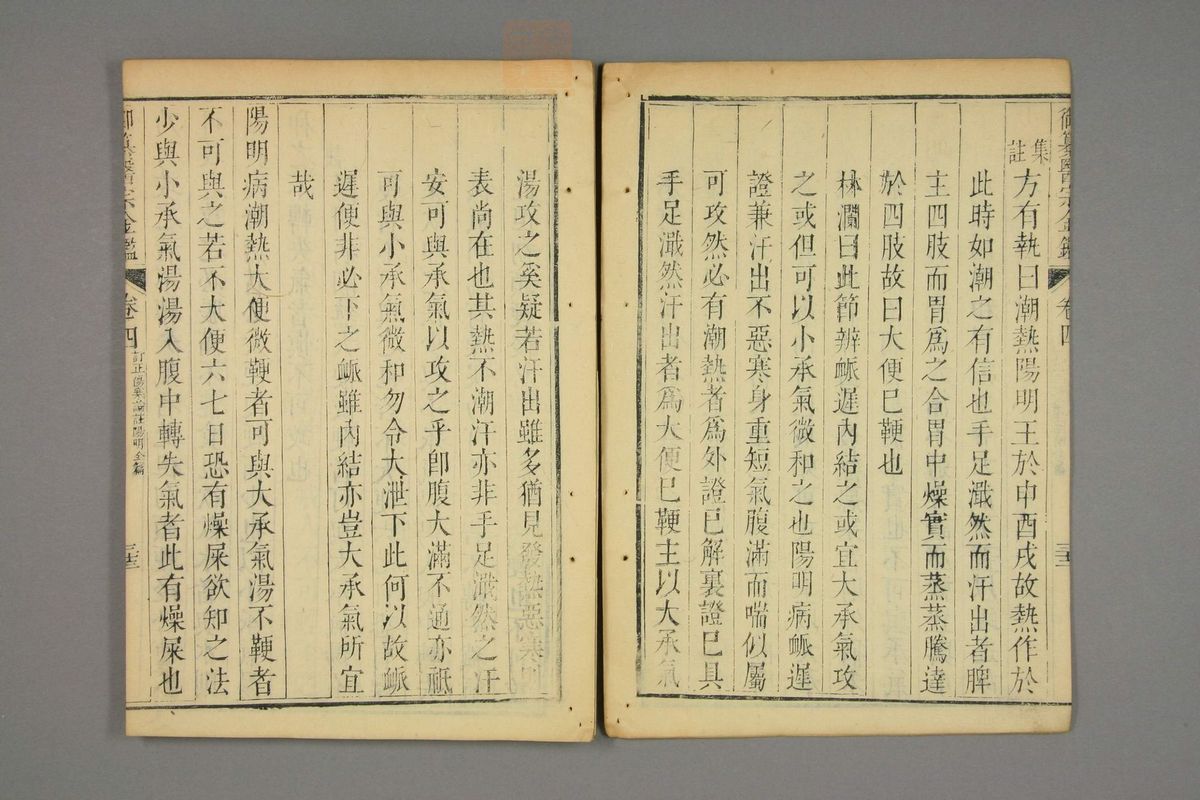 御纂醫宗金鑑 卷四
集註
方有執曰潮熱陽明王於申酉戌故熱作於
此時如潮之有信也手足濈然而汗出者脾
主四肢而胃爲之合胃中燥實而蒸蒸騰達
於四肢故曰大便已鞕也
林瀾曰此節辨䘑遲內結之或宜大承氣攻
之或但可以小承氣微和之也陽明病䘑遲
證兼汗出不惡寒身重短氣腹滿而喘似屬
可攻然必有潮熱者爲外證已解裏證已具
手足濈然汗出者爲大便已鞕主以大承氣
湯攻之奚疑若汗出雖多猶見發熱惡寒則
表尚在也其熱不潮汗亦非手足濈然之汗
安可與承氣以攻之乎卽腹大滿不通亦祗
可與小承氣微和勿令大泄下此何以故䘑
遲便非必下之䘑雖內結亦豈大承氣所宜
哉
陽明病潮熱大便微鞕者可與大承氣湯不鞕者
不可與之若不大便六七日恐有燥屎欲知之法
少與小承氣湯湯入腹中轉失氣者此有燥屎也
御纂醫宗金鑑 卷四 訂正傷寒論註陽明全篇